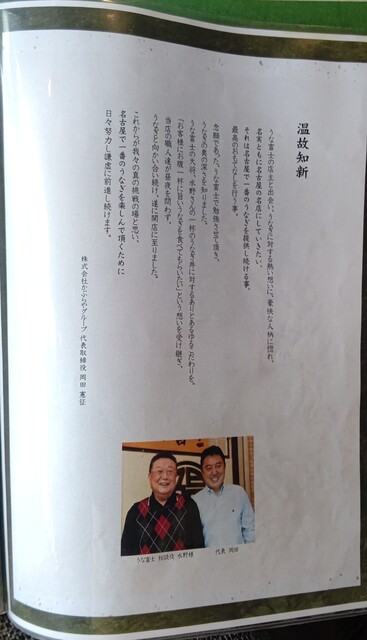 温故知新
うな富士の店主と出会い、うなぎに対する熱い想いに、豪快な人柄に惚れ、
名実ともに名古屋の名店にしていきたい。
それは名古屋で一番のうなぎを提供し続ける事。
最高のおもてなしを行う事。
念願であった、うな富士で勉強させて頂き、
うなぎの奥の深さを知りました。
うな富士の大谷、水野さんの一杯のうなぎ丼に対するありとあらゆるこだわりを、
「お客様にお腹一杯に旨いうなぎを食べてもらいたい」という想いを受け継ぎ、
当店の職人達が昼夜を問わず、
うなぎと向かい合い続け、遂に開店に至りました。
これからが我々の真の挑戦の場と思い、
名古屋で一番のうなぎを楽しんで頂くために
日々努力し謙虚に前進し続けます。
株式会社かぶらやグループ 代表取締役 岡田 憲征
うな富士 相談役 水野様
代表 岡田